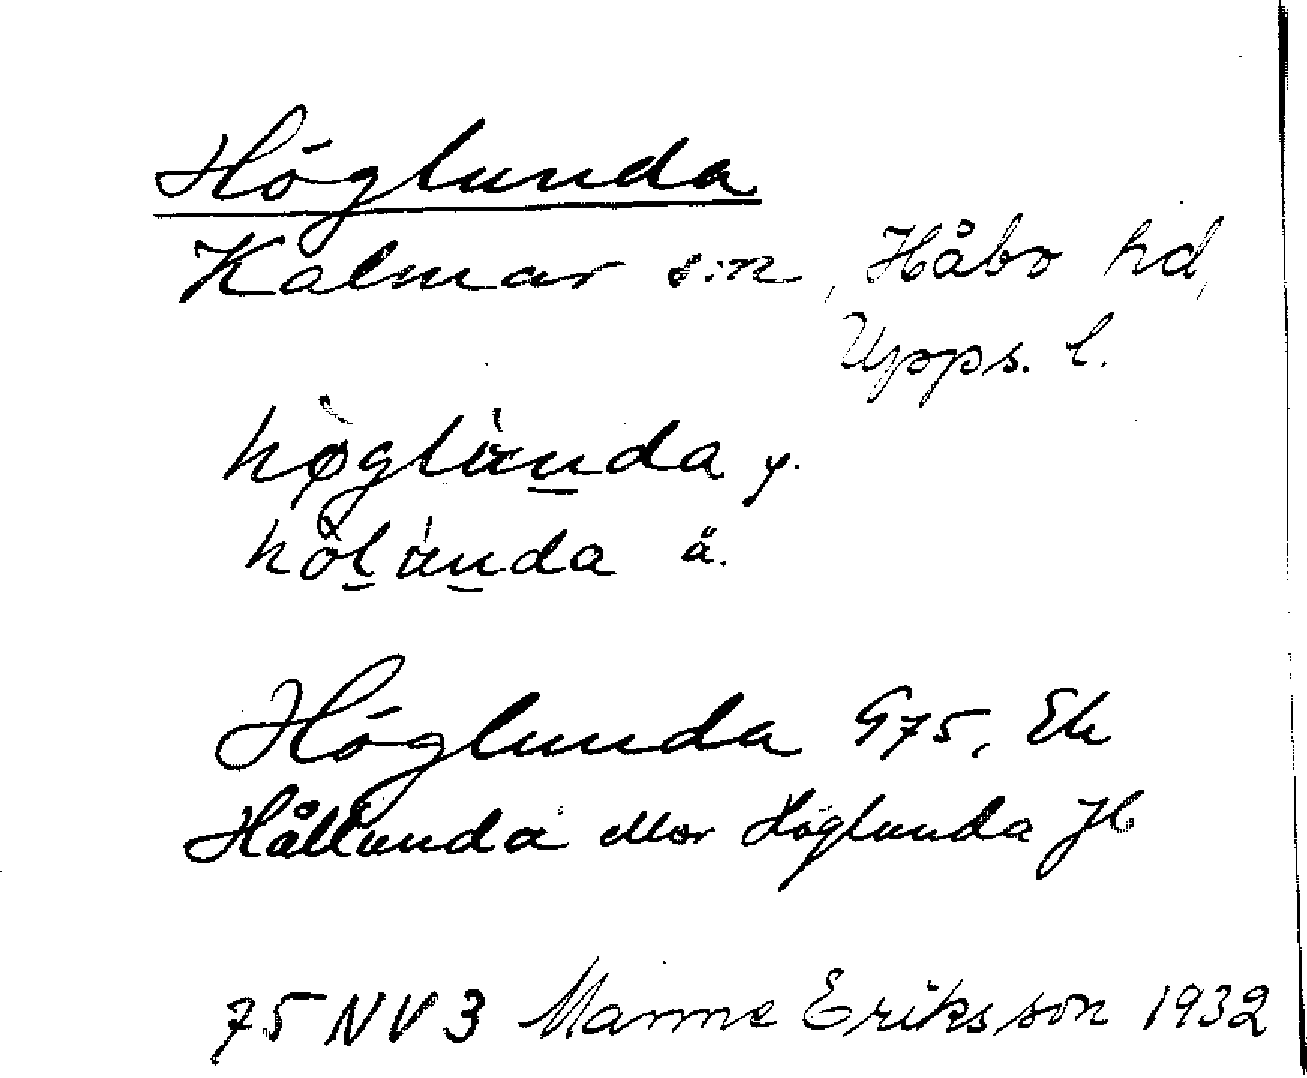 Höglunda
Kalmar s:n, Håbo hd,
Upps. l.
høglùnda y.
hölùnda ä.
Höglunda G75, Ek
Hållunda eller Höglunda JK
75 NV 3 Manne Eriksson 1932